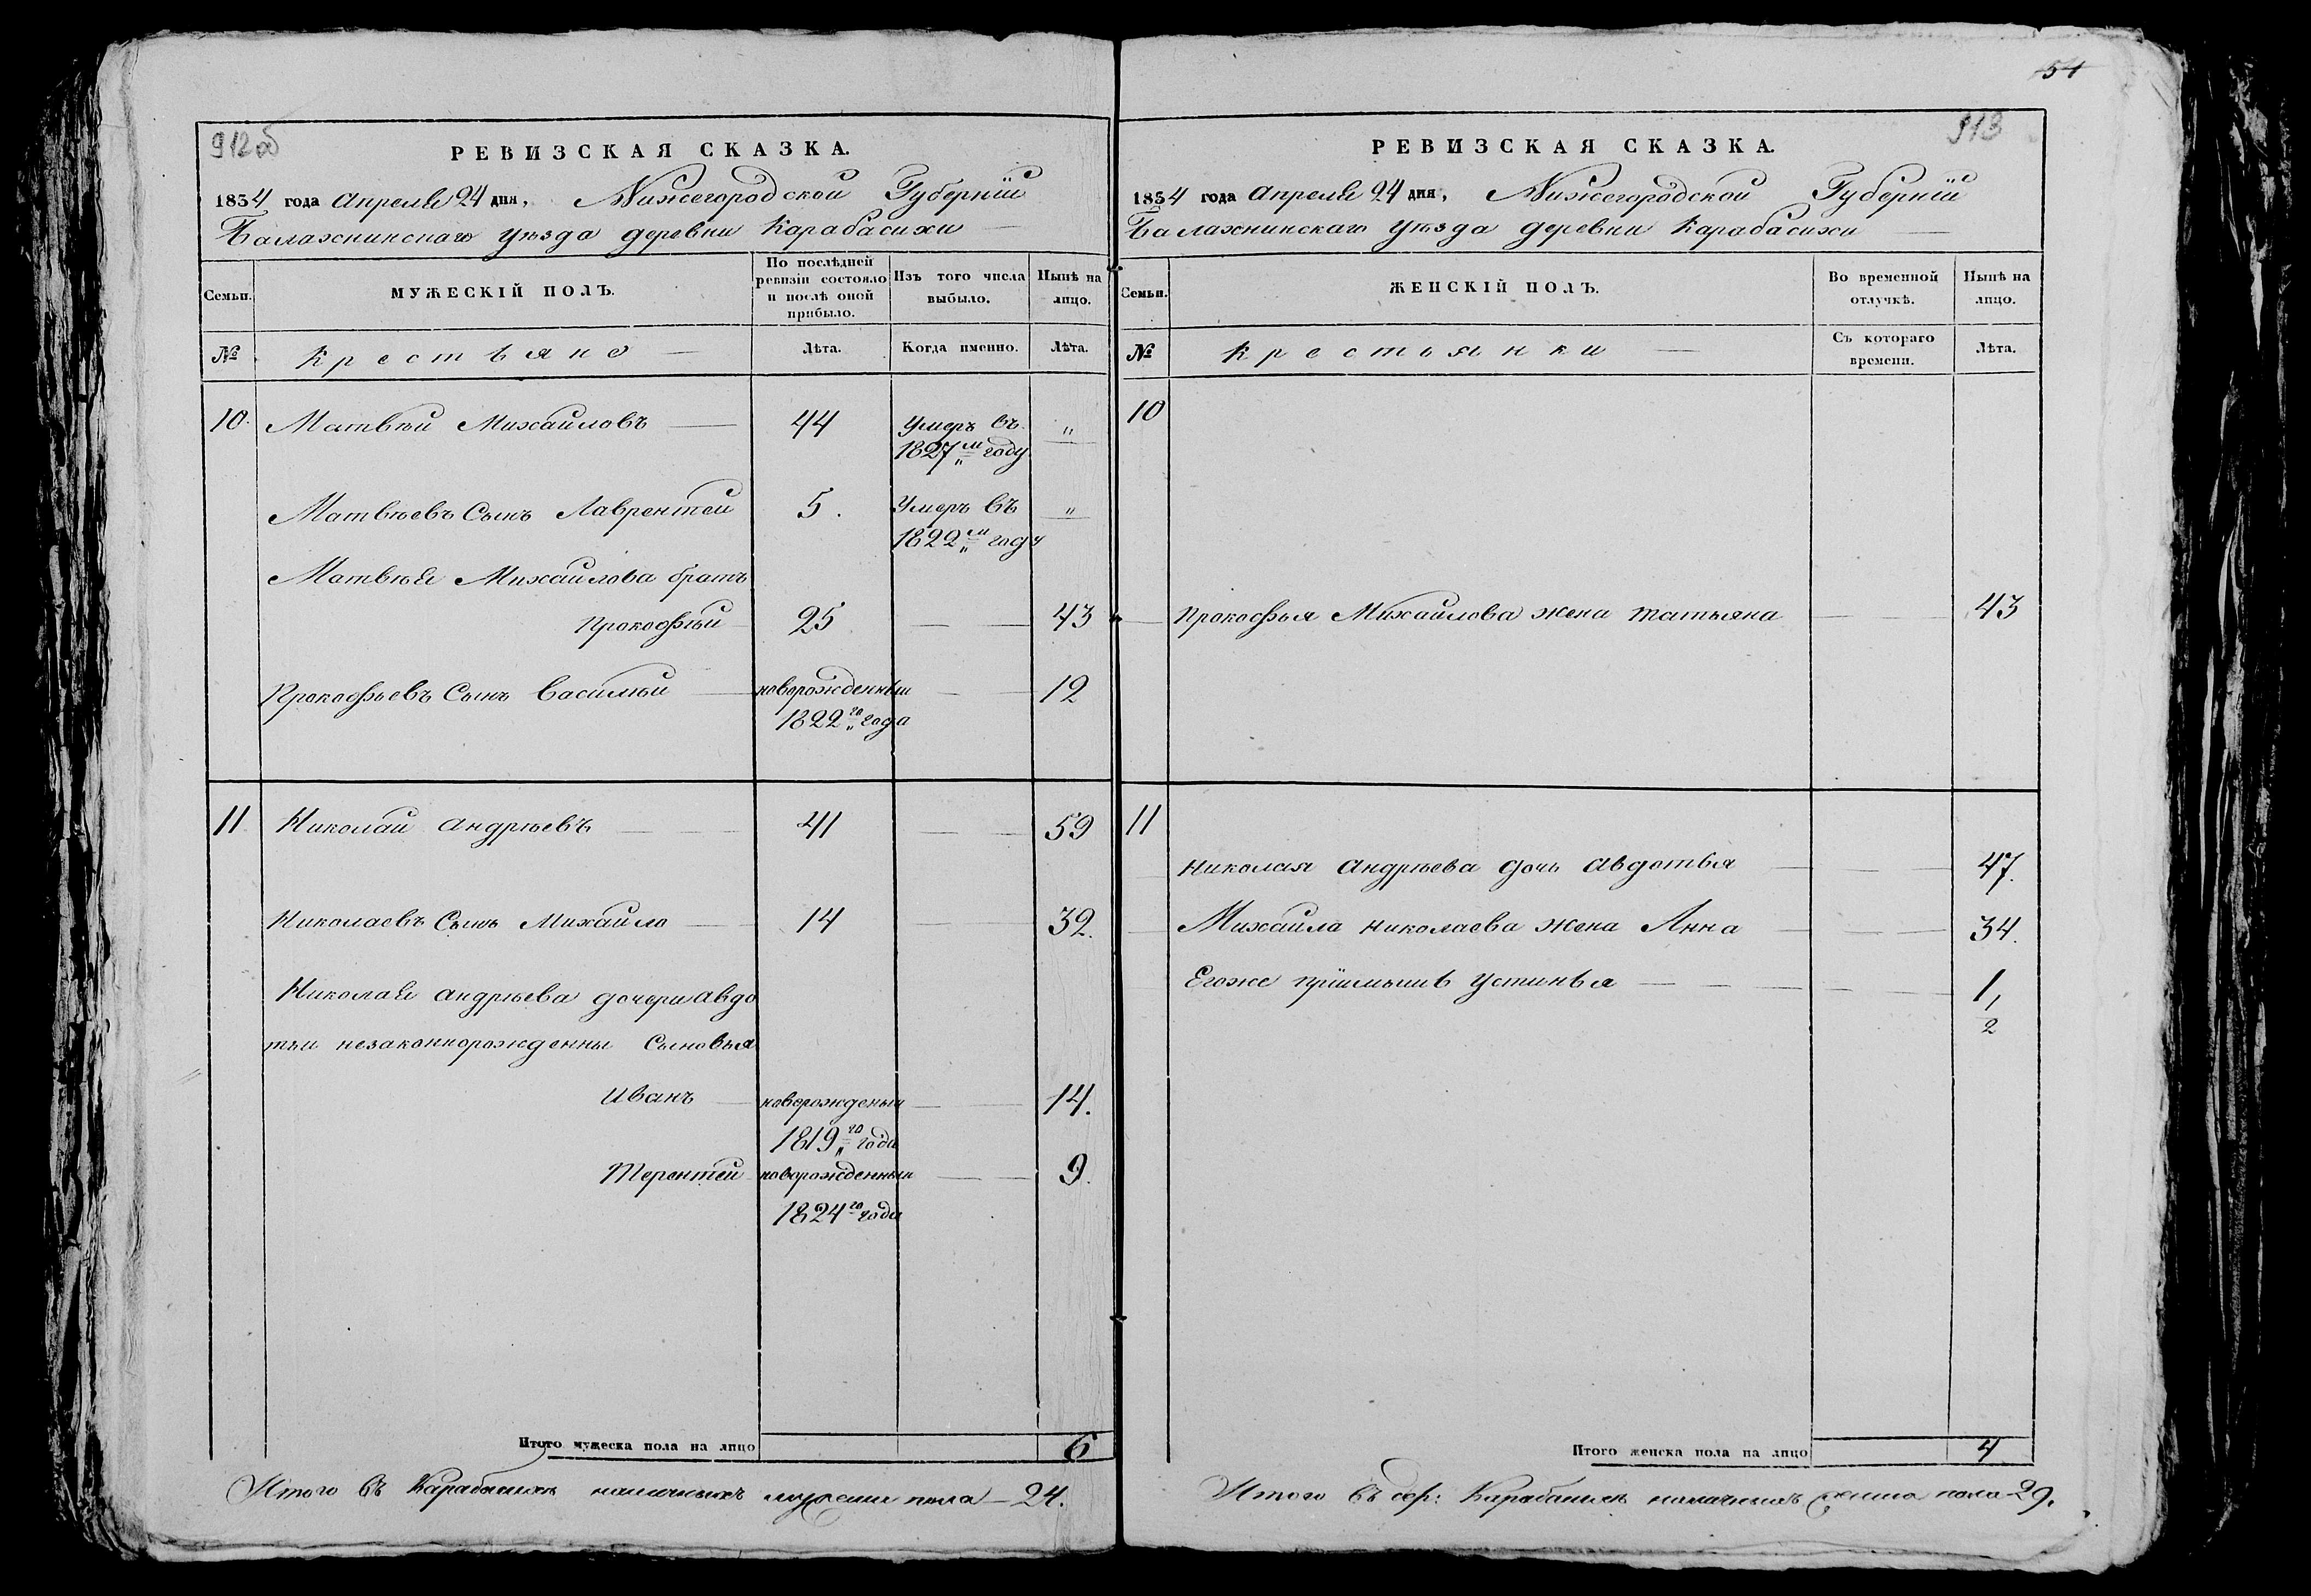 54
912об
РЕВИЗСКАЯ СКАЗКА.
1834 года Апреля 24 дня, Нижегородской Губернїи
Балахнинскаго уѣзда деревни Карабасихи
Семьи.
МУЖЕСКІЙ ПОЛЪ.
По послѣдней ревизіи состояло и послѣ оной прибыло.
Изъ того числа выбыло.
Нынѣ на лицо.
№
Крестьяне
Лѣта.
Когда именно.
Лѣта.
10. Матвѣй Михайловъ 44 Умеръ въ "
1827м году
Матвѣевъ Сынъ Лаврентей 5. Умеръ въ "
1822м году
Матвѣя Михайлова братъ
Прокофѣй 25 43
Прокофьевъ Сынъ Василѣй новорожденный 12
1822го года
11 Николай Андрѣевъ 41 59
Николаевъ Сынъ Михайло 14 32.
Николая Андрѣева дочери Авдо
тьи незаконнорожденны Сыновья
Иванъ новорожденый 14.
1819го года
Терентей новорожденный 9.
1824го года
Итого мужеска пола на лицо 6
Итого въ Карабасихѣ наличныхъ мужеска пола 24.
913
РЕВИЗСКАЯ СКАЗКА.
1834 года Апреля 24 дня, Нижегородской Губернїи
Балахнинскаго уѣзда деревни Карабасихи
Семьи.
ЖЕНСКІЙ ПОЛЪ.
Во временной отлучкѣ.
Нынѣ на лицо.
№
Крестьянки
Съ котораго времени.
Лѣта.
10
Прокофья Михайлова жена Татьяна 43
11
Николая Андрѣева дочь Авдотья 47.
Михайла Николаева жена Анна 34.
Егоже прїимышь Устинья 1/2
Итого женска пола на лицо 4
Итого въ дер: Карабасихѣ наличныхъ женска пола 29.